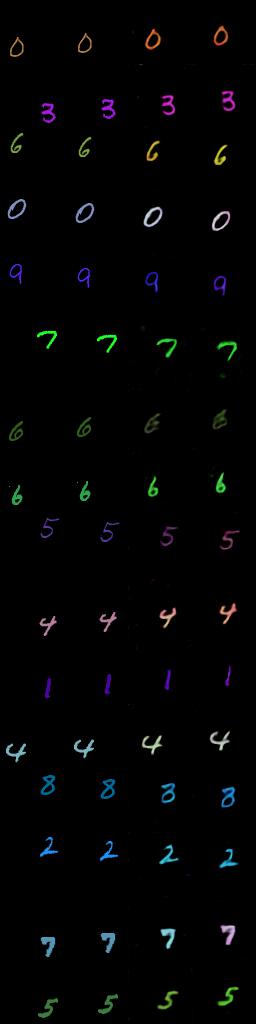 0 0 0 0
3 3 3 3
6 6 6 6
0 0 0 0
9 9 9 9
7 7 7 7
6 6 6 6
6 6 6 6
5 5 5 5
4 4 4 4
1 1 1 1
4 4 4 4
8 8 8 8
2 2 2 2
7 7 7 7
5 5 5 5